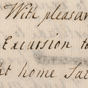 With pleasur
Excursion to
at home Sat